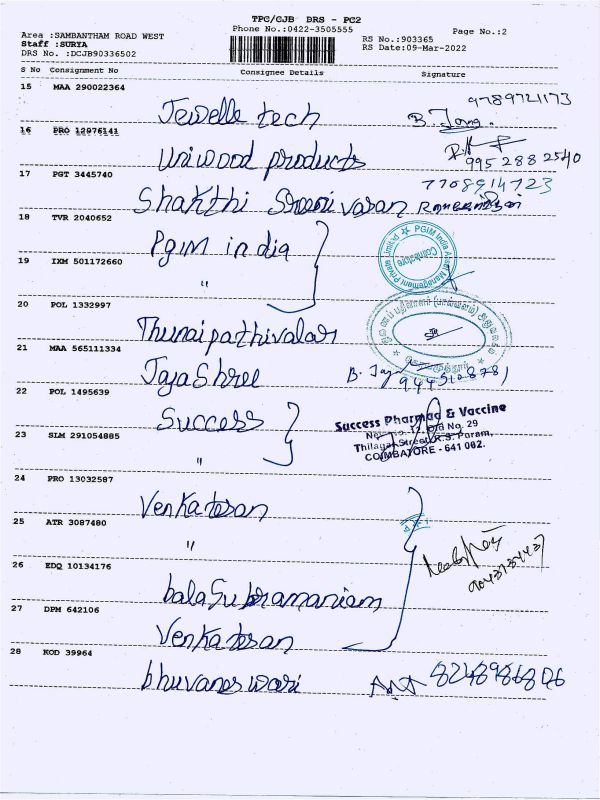 TPC/CJB DRS - PC2
Phone No.:0422-3505555
Page No.:2
Area :SAMBANTHAM ROAD WEST
RS No.:903365
Staff :SURYA
RS Date:09-Mar-2022
DRS No. :DCJB90336502
S No Consignment No Consignee Details Signature
15 MAA 290022364
Jewelle tech
9789721173
16 PRO 12976141
Uniwood products
995 288 2540
17 PGT 3445740
7708914723
Shakthi Sreenivasan
18 TVR 2040652
PGIM india
PGIM India Asset Management Private Limited
Coimbatore
19 IXM 501172660
"
20 POL 1332997
Thunaipathivalar
21 MAA 565111334
JajaShree
B. Jay
22 POL 1495639
Success
Success Pharmaa & Vaccine
Old No. 29
Thilagar Street, R.S. Puram,
COIMBATORE - 641 002.
23 SLM 291054885
"
24 PRO 13032587
Venkatesan
25 ATR 3087480
"
26 EDQ 10134176
balaSubramaniam
27 DPM 642106
Venkatesan
28 KOD 39964
bhuvaneswari